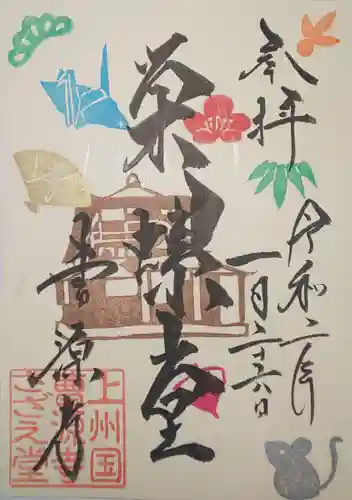 奉拝
令和二年
一月二十六日
栄螺堂
曹源寺
上州国
曹源寺
さざえ堂